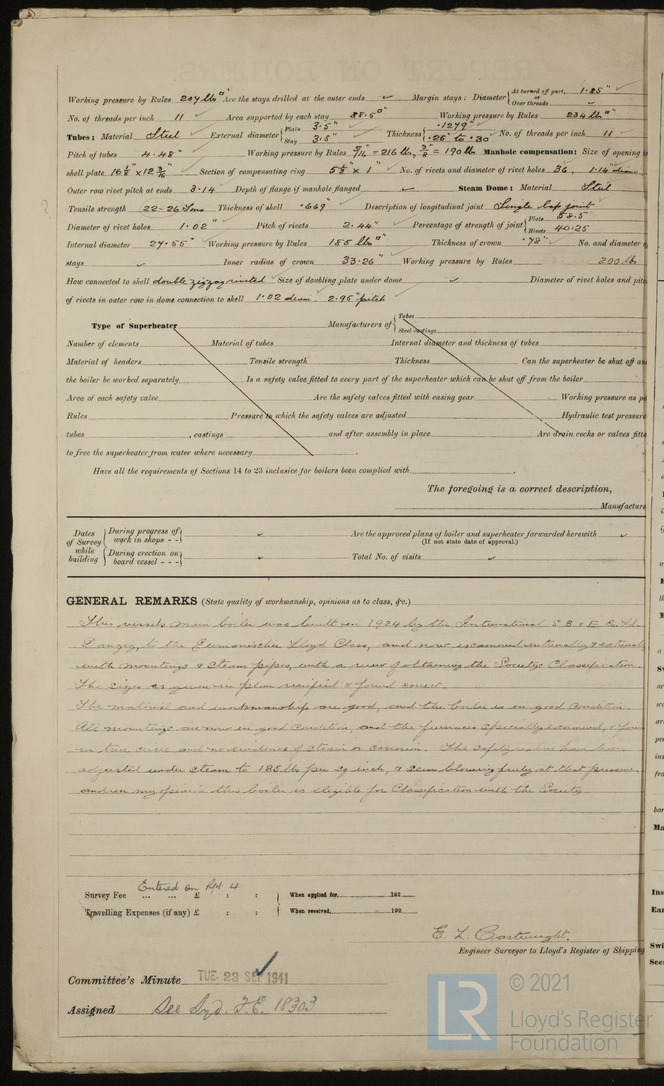 Working pressure by Rules 207 lbs □" Are the stays drilled at the outer ends ✓ Margin stays: Diameter { At turned off part, 1.85" or Over threads ✓
No. of threads per inch 11 Area supported by each stay 88.5 □" Working pressure by Rules 234 lbs □"
Tubes: Material Steel External diameter { Plain 3.5" Stay 3.5" Thickness { .1279" .26" to .30 No. of threads per inch 11
Pitch of tubes 4.48" Working pressure by Rules 5/16 = 216 lbs, 3/8 = 190 lbs Manhole compensation: Size of opening in
shell plate 16½ × 12 Section of compensating ring 5½ × 1" No. of rivets and diameter of rivet holes 36, 1.14" diam.
Outer row rivet pitch at ends 3.14 Depth of flange if manhole flanged ✓ Steam Dome: Material Steel
Tensile strength 22-26 Tons Thickness of shell .669" Description of longitudinal joint Single lap joint
Diameter of rivet holes 1.02" Pitch of rivets 2.44" Percentage of strength of joint { Plate 58.5 Rivets 40.25
Internal diameter 27.55" Working pressure by Rules 185 lbs □" Thickness of crown .78" No. and diameter of
stays ✓ Inner radius of crown 33.26" Working pressure by Rules 200 lbs
How connected to shell double zigzag riveted Size of doubling plate under dome ✓ Diameter of rivet holes and pitch
of rivets in outer row in dome connection to shell 1.02 diam. 2.95" pitch
Type of Superheater Manufacturers of { Tubes Steel castings
Number of elements Material of tubes Internal diameter and thickness of tubes
Material of headers Tensile strength Thickness Can the superheater be shut off an
the boiler be worked separately Is a safety valve fitted to every part of the superheater which can be shut off from the boiler
Area of each safety valve Are the safety valves fitted with easing gear Working pressure as pe
Rules Pressure to which the safety valves are adjusted Hydraulic test pressure
tubes , castings and after assembly in place Are drain cocks or valves fitte
to free the superheater from water where necessary
Have all the requirements of Sections 14 to 23 inclusive for boilers been complied with
The foregoing is a correct description,
Manufacture
Dates of Survey while building { During progress of work in shops - - } ✓ Are the approved plans of boiler and superheater forwarded herewith ✓
(If not state date of approval.)
{ During erection on board vessel - - } ✓ Total No. of visits ✓
GENERAL REMARKS (State quality of workmanship, opinions as to class, &c.)
This vessels main boiler was built in 1924 by the International S.B. & E. Co. Ld.
Danzig, to the Germanischer Lloyd Class, and now examined internally & external
with mountings & steam pipes, with a view of obtaining the Society's Classification.
The sizes as given in plan verified & found correct.
The material and workmanship are good, and the boiler is in good condition.
All mountings are now in good condition, and the furnaces specially examined, & foun
in true circle and no evidence of strain or corrosion. The safety valves have been
adjusted under steam to 185 lbs per sq inch, & seen blowing freely at that pressure,
and in my opinion this boiler is eligible for Classification with the Society
Survey Fee ... ... £ : : Entered on Rpt 4 When applied for, 192
Travelling Expenses (if any) £ : : When received, 192
E. L. Cartwright.
Engineer Surveyor to Lloyd's Register of Shipping
Committee's Minute TUE. 23 SEP 1941
Assigned See Syd. F.E. 18303
LR © 2021
Lloyd's Register
Foundation